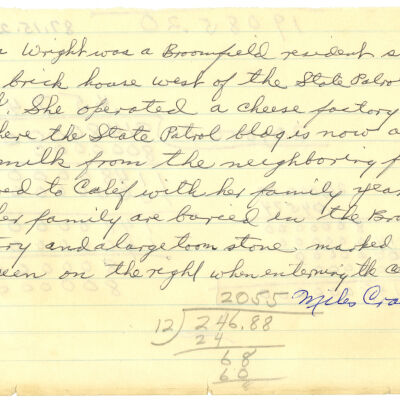 Wright was a Broomfield resident s
brick house west of the State Patro
. She operated a cheese factory
here the State Patrol bldg is now a
milk from the neighboring f
ed to Calif with her family year
her family are buried in the Bro
ry and a large toom stone marked
een on the right when entering the ce
Miles Cra
2055
12)246.88
24
68
60